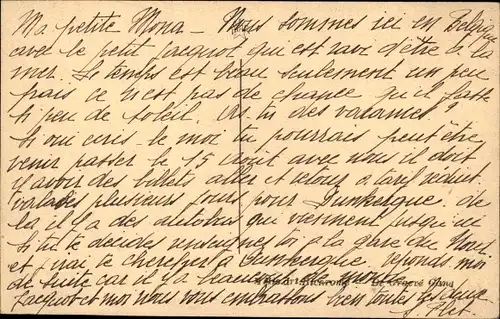 Ma petite Mona - Nous sommes ici en Belgique
avec le petit Jacquot qui est ravi d'être à la
mer. Le temps est beau seulement un peu
frais ce n'est pas de chance qu'il fasse
si peu de soleil. As tu des vacances?
Si oui écris le moi tu pourrais peut être
venir passer le 15 août avec nous il doit
y avoir des billets aller et retour à tarif réduit
valables plusieurs jours pour Dunkerque. de
là il y a des autobus qui viennent jusqu'ici
Si tu te décides renseignes toi à la gare du Nord
et j'irai te chercher à Dunkerque réponds moi
de suite car il y a beaucoup de monde
Jacquot et moi nous vous embrassons bien toutes les deux